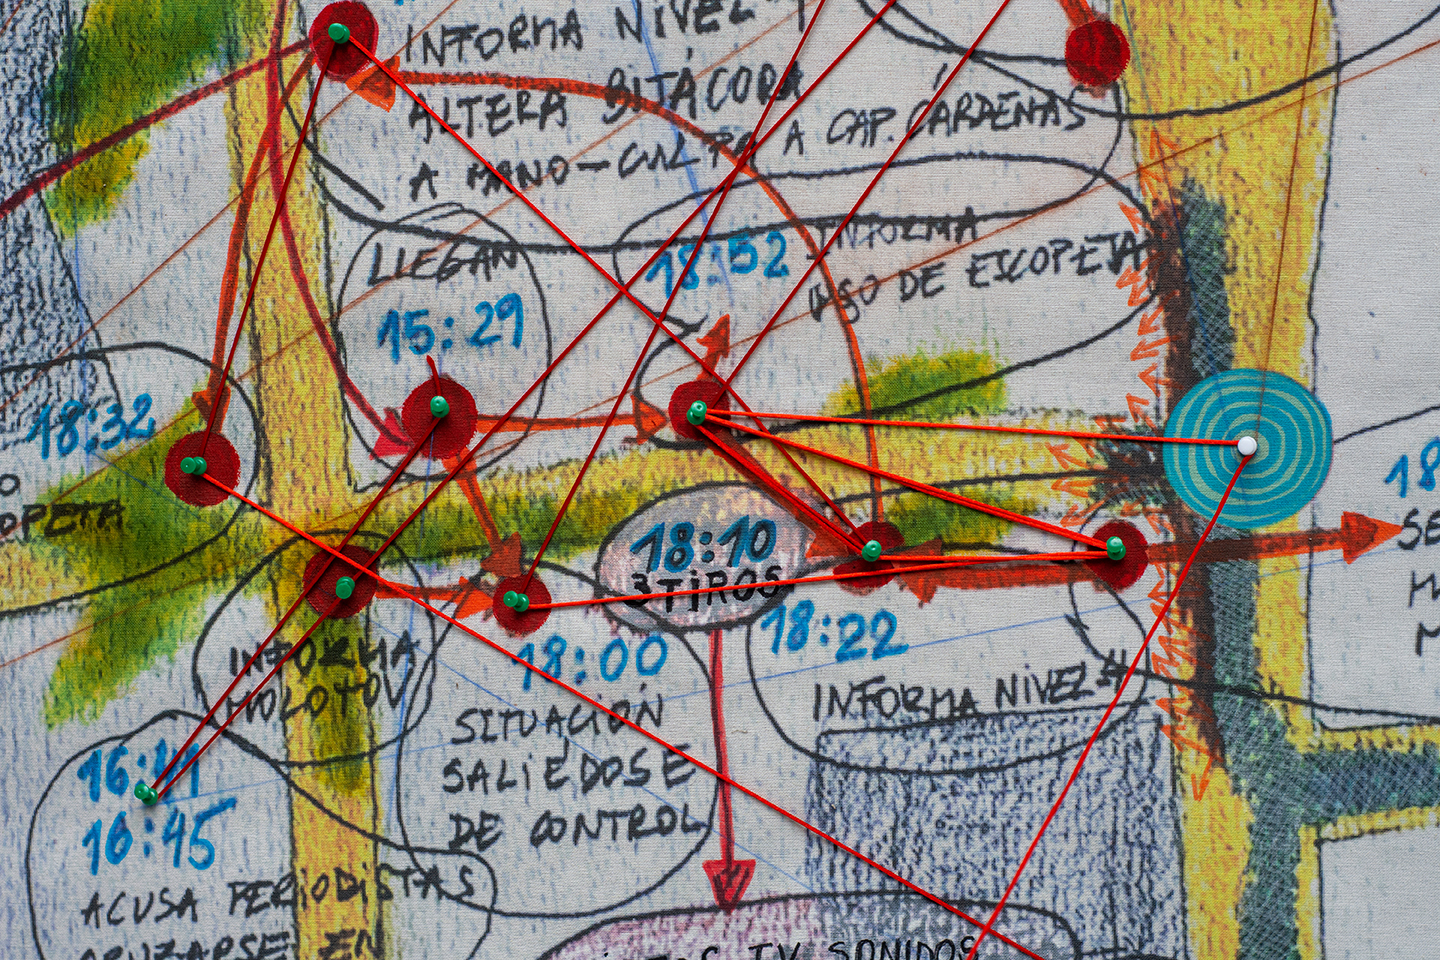 INFORMA NIVEL 4
ALTERA BITÁCORA
A MANO-CULPA A CAP. CÁRDENAS
LLEGAN
15:29
18:52
INFORMA
USO DE ESCOPETA
18:32
O
OPETA
18:10
3 TIROS
18:22
INFORMA NIVEL 4
INFORMA
MOLOTOV
18:00
SITUACIÓN
SALIÉDOSE
DE CONTROL
16:41
16:45
ACUSA PERIODISTAS
CRUZARSE EN
TV SONIDOS
18
SE
M